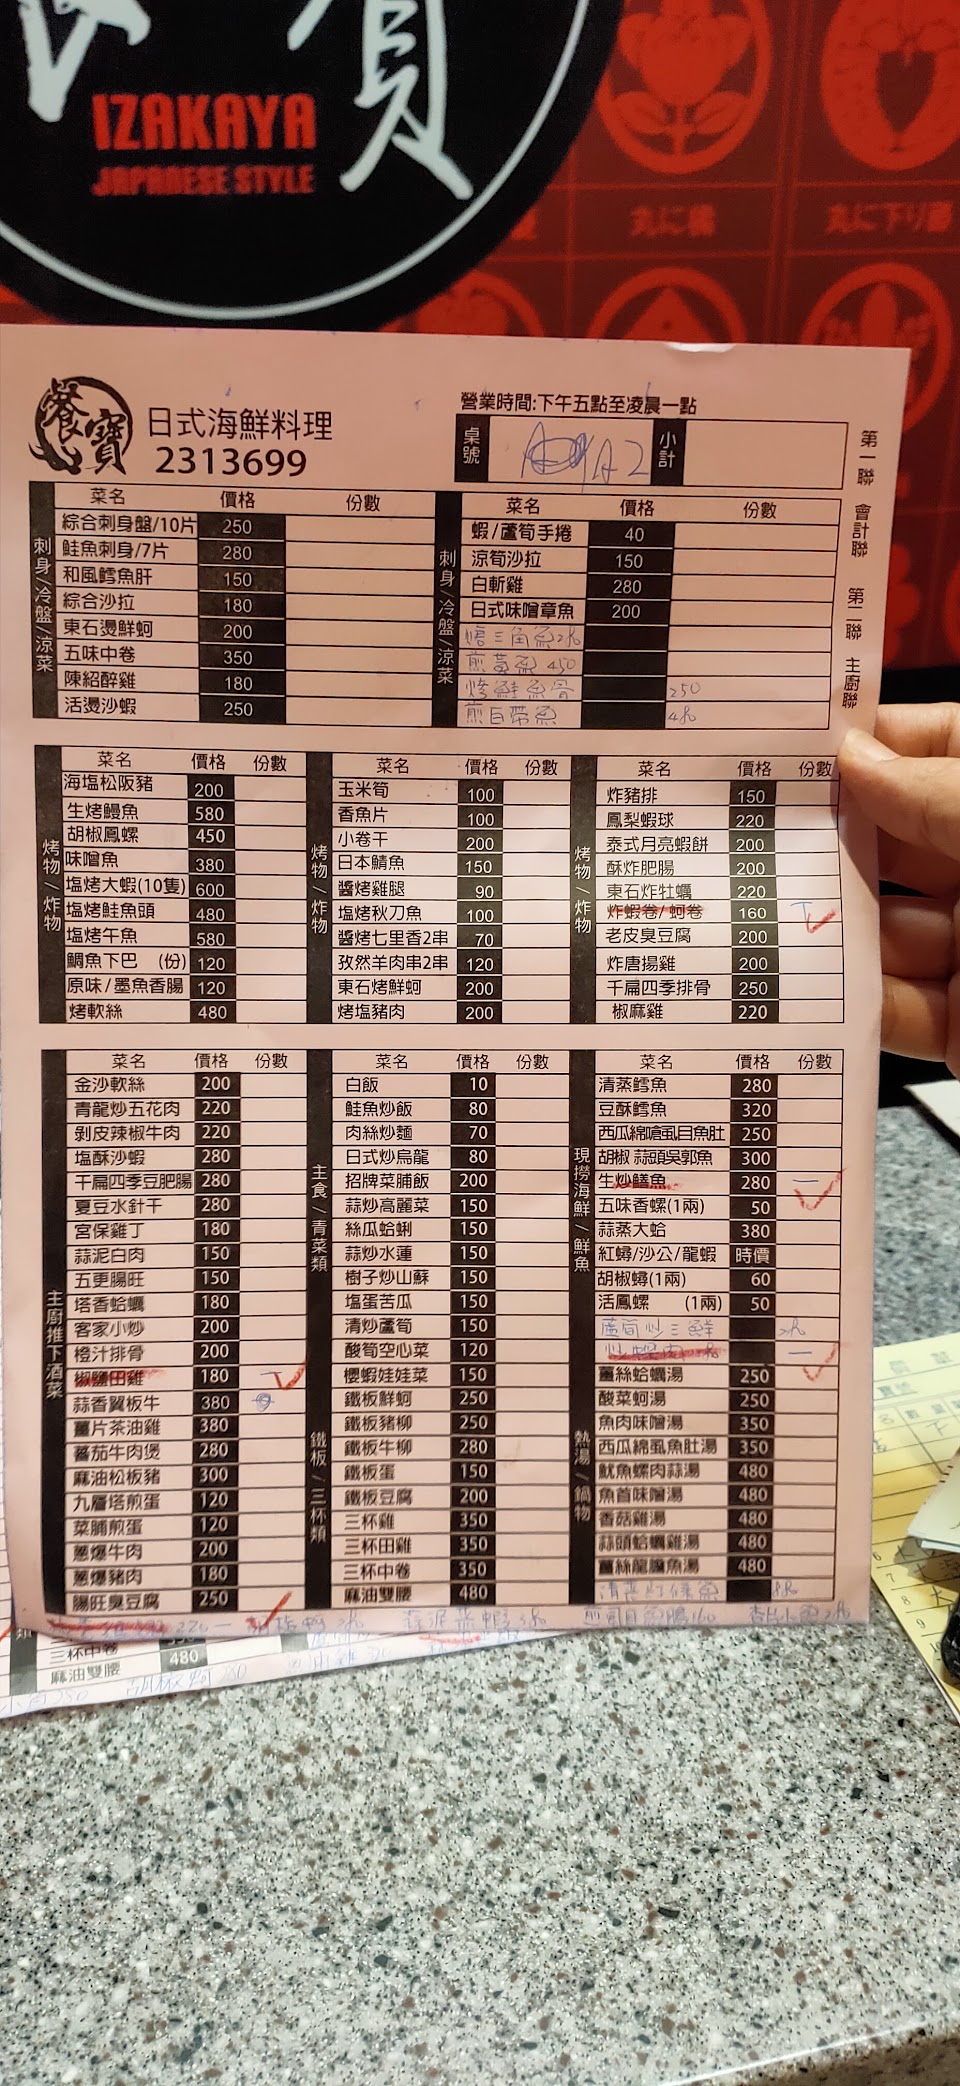 寶
IZAKAYA
JAPANESE STYLE
丸に下り藤
餐寶
日式海鮮料理
2313699
營業時間:下午五點至凌晨一點
桌號 A2 小計
第一聯 會計聯 第二聯 主廚聯
刺身/冷盤/涼菜
菜名 價格 份數
綜合刺身盤/10片 250
鮭魚刺身/7片 280
和風鱈魚肝 150
綜合沙拉 180
東石燙鮮蚵 200
五味中卷 350
陳紹醉雞 180
活燙沙蝦 250
刺身/冷盤/涼菜
菜名 價格 份數
蝦/蘆筍手捲 40
涼筍沙拉 150
白斬雞 280
日式味噌章魚 200
三角魚
煎黃魚 450
烤鮭魚骨 250
煎白帶魚
烤物/炸物
菜名 價格 份數
海塩松阪豬 200
生烤鰻魚 580
胡椒鳳螺 450
味噌魚 380
塩烤大蝦(10隻) 600
塩烤鮭魚頭 480
塩烤午魚 580
鯛魚下巴 (份) 120
原味/墨魚香腸 120
烤軟絲 480
烤物/炸物
菜名 價格 份數
玉米筍 100
香魚片 100
小卷干 200
日本鯖魚 150
醬烤雞腿 90
塩烤秋刀魚 100
醬烤七里香2串 70
孜然羊肉串2串 120
東石烤鮮蚵 200
烤塩豬肉 200
烤物/炸物
菜名 價格 份數
炸豬排 150
鳳梨蝦球 220
泰式月亮蝦餅 200
酥炸肥腸 200
東石炸牡蠣 220
炸蝦卷/蚵卷 160
老皮臭豆腐 200
炸唐揚雞 200
千扁四季排骨 250
椒麻雞 220
主廚推下酒菜
菜名 價格 份數
金沙軟絲 200
青龍炒五花肉 220
剝皮辣椒牛肉 220
塩酥沙蝦 280
干扁四季豆肥腸 280
夏豆水針干 280
宮保雞丁 180
蒜泥白肉 150
五更腸旺 150
塔香蛤蠣 180
客家小炒 200
橙汁排骨 200
椒鹽田雞 180
蒜香翼板牛 380
薑片茶油雞 380
蕃茄牛肉煲 280
麻油松板豬 300
九層塔煎蛋 120
菜脯煎蛋 120
蔥爆牛肉 200
蔥爆豬肉 180
腸旺臭豆腐 250
主食/青菜類
菜名 價格 份數
白飯 10
鮭魚炒飯 80
肉絲炒麵 70
日式炒烏龍 80
招牌菜脯飯 200
蒜炒高麗菜 150
絲瓜蛤蜊 150
蒜炒水蓮 150
樹子炒山蘇 150
塩蛋苦瓜 150
清炒蘆筍 150
酸筍空心菜 120
櫻蝦娃娃菜 150
鐵板/三杯類
鐵板鮮蚵 250
鐵板豬柳 250
鐵板牛柳 280
鐵板蛋 150
鐵板豆腐 200
三杯雞 350
三杯田雞 350
三杯中卷 350
麻油雙腰 480
現撈海鮮/鮮魚
菜名 價格 份數
清蒸鱈魚 280
豆酥鱈魚 320
西瓜綿嗆虱目魚肚 250
胡椒 蒜頭吳郭魚 300
生炒鱔魚 280 一
五味香螺(1兩) 50
蒜蒸大蛤 380
紅蟳/沙公/龍蝦 時價
胡椒蟳(1兩) 60
活鳳螺 (1兩) 50
蘆筍炒三鮮
熱湯/鍋物
薑絲蛤蠣湯 250
酸菜蚵湯 250
魚肉味噌湯 350
西瓜綿虱魚肚湯 350
魷魚螺肉蒜湯 480
魚首味噌湯 480
香菇雞湯 480
蒜頭蛤蠣雞湯 480
薑絲龍膽魚湯 480
三杯中卷
麻油雙腰 480